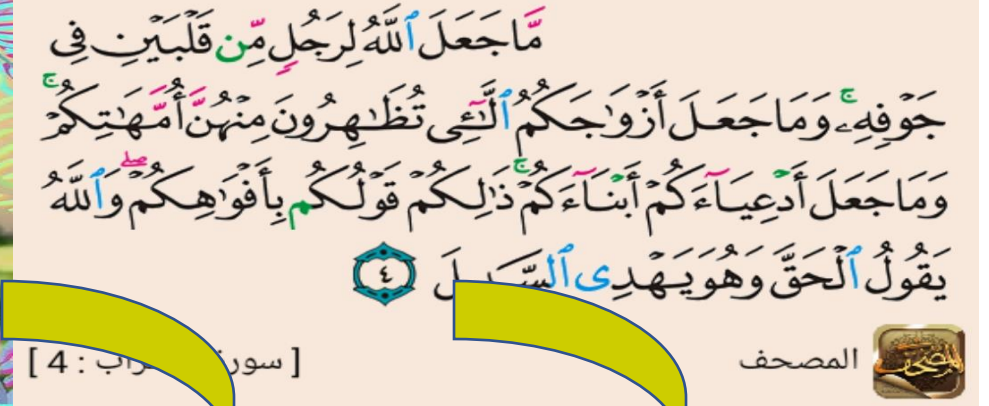 مَّا جَعَلَ ٱللَّهُ لِرَجُلٍ مِّن قَلْبَيْنِ فِى
جَوْفِهِۦ ۚ وَمَا جَعَلَ أَزْوَٰجَكُمُ ٱلَّٰٓـِٔى تُظَٰهِرُونَ مِنْهُنَّ أُمَّهَٰتِكُمْ ۚ
وَمَا جَعَلَ أَدْعِيَآءَكُمْ أَبْنَآءَكُمْ ۚ ذَٰلِكُمْ قَوْلُكُم بِأَفْوَٰهِكُمْ ۖ وَٱللَّهُ
يَقُولُ ٱلْحَقَّ وَهُوَ يَهْدِى ٱلسَّبِيلَ ٤
المصحف
[ 4 :